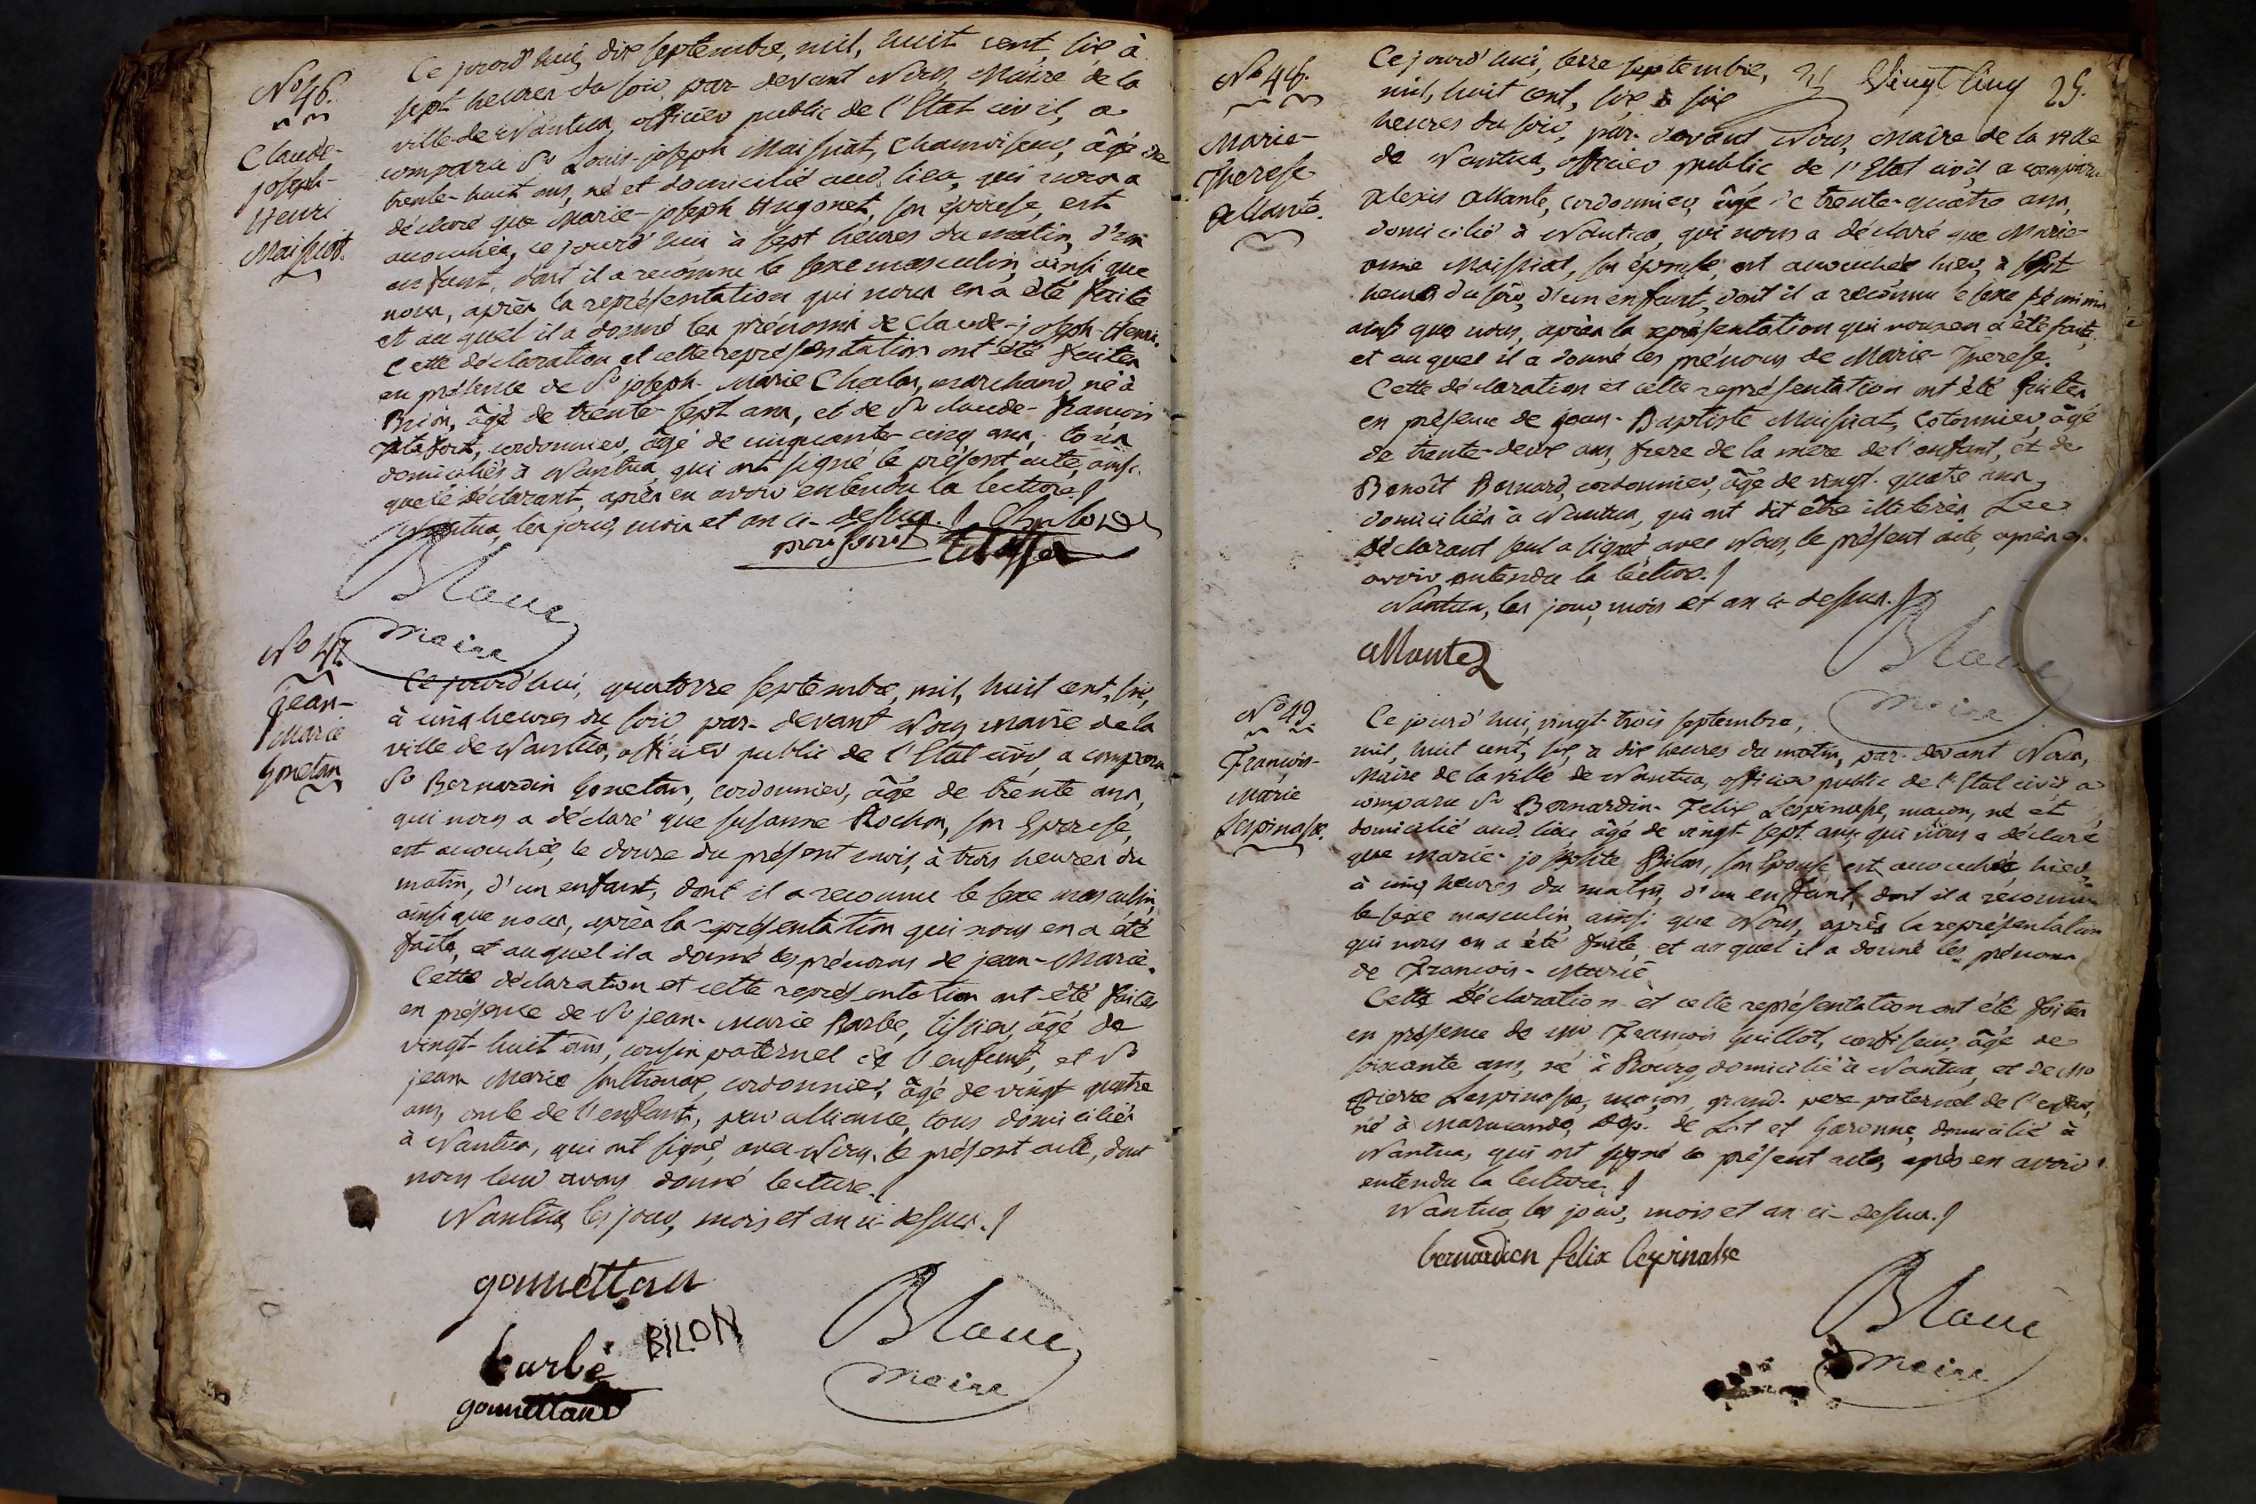 Ce jourd'hui, dix septembre, mil, huit cent, six à
sept heures du soir, par-devant Nous, Maire de la
ville de Nantua, officier public de l'Etat civil, a
comparu Sr Louis-joseph Maissiat, Chamoiseur, âgé de
trente-huit ans, né et domicilié aud. lieu, qui nous a
déclaré que Marie-joseph Hugonet, son épouse, est
accouchée, ce jourd'hui à sept heures du matin, d'un
enfant, dont il a reconnu le sexe masculin, ainsi que
nous, après la représentation qui nous en a été faite
et au quel il a donné les prénoms de Claude-joseph-Henri.
Cette déclaration et cette représentation ont été faites
en présence de Sr joseph-Marie Chalon, marchand, né à
Brion, âgé de trente-sept ans, et de Sr claude-francois
cordonnier, âgé de cinquante-cinq ans, tous
domiciliés à Nantua, qui ont signé le présent acte, ainsi
que le déclarant, après en avoir entendu la lecture.
Nantua, les jour, mois et an ci-dessus.
Blanc
maire
No 46.
Claude-
joseph-
Henri
Maissiat.
No 47.
jean-
Marie
Gonetan
Ce jourd'hui, quatorze septembre, mil, huit cent, six,
à cinq heures du soir, par-devant Nous, maire de la
ville de Nantua, officier public de l'Etat civil, a comparu
Sr Bernardin Gonetan, cordonnier, âgé de trente ans,
qui nous a déclaré que Susanne Rochon, son Epouse,
est accouchée, le douze du présent mois, à trois heures du
matin, d'un enfant, dont il a reconnu le sexe masculin,
ainsi que nous, après la représentation qui nous en a été
faite, et au quel il a donné les prénoms de jean-Marie.
Cette déclaration et cette représentation ont été faites
en présence de Sr jean-Marie Barbe, tissier, âgé de
vingt-huit ans, cousin paternel de l'enfant, et Sr
jean Marie cordonnier, âgé de vingt quatre
ans, oncle de l'enfant, par alliance, tous domiciliés
à Nantua, qui ont signé, avec Nous, le présent acte, dont
nous leur avons donné lecture.
Nantua, les jour, mois et an ci-dessus.
gonnéttan
barbé BILON
gonnettand
Blanc
maire
Vingt Cinq 25.
No 48.
Marie-
Therese
Allante.
Ce jourd'hui, treze septembre,
mil, huit cent, six à six
heures du soir, par-devant Nous, Maire de la ville
de Nantua, officier public de l'Etat civil, a comparu
Alexis Allante, cordonnier, âgé de trente-quatre ans,
domicilié à Nantua, qui nous a déclaré que Marie-
anne Maissiat, son épouse, est accouchée hier, à sept
heures du soir, d'un enfant, dont il a reconnu le sexe féminin
ainsi que nous, après la représentation qui nous en a été faite,
et au quel il a donné les prénoms de Marie-Therese.
Cette déclaration et cette représentation ont été faites
en présence de jean-Baptiste Maissiat, Cotonnier, âgé
de trente-deux ans, frere de la mere de l'enfant, et de
Benoît Bernard, cordonnier, âgé de vingt-quatre ans,
domiciliés à Nantua, qui ont dit être illeterés. Le
Déclarant seul a signé avec Nous, le présent acte, après en
avoir entendu la lecture.
Nantua, les jour, mois et an ci-dessus.
allante
Blanc
maire
No 49.
François-
Marie
Lespinasse.
Ce jourd'hui, vingt-trois septembre,
mil, huit cent, six, à dix heures du matin, par-devant Nous,
Maire de la ville de Nantua, officier public de l'Etat civil, a
comparu Sr Bernardin-Felix Lespinasse, maçon, né et
domicilié aud. lieu âgé de vingt-sept ans, qui nous a déclaré
que Marie-josephte Bilon, son Epouse, est accouchée hier,
à cinq heures du matin, d'un enfant, dont il a reconnu
le sexe masculin, ainsi que Nous, après la représentation
qui nous en a été faite, et au quel il a donné les prénoms
de Francois-Marie
Cette Déclaration et cette représentation ont été faites
en présence de François Guillot, confiseur, âgé de
soixante ans, né à Bourg, domicilié à Nantua, et de
Pierre Lespinasse, maçon, grand-pere paternel de l'enfant,
né à Dép. de Lot et Garonne, domicilié à
Nantua, qui ont signé le présent acte, après en avoir
entendu la lecture.
Nantua, les jour, mois et an ci-dessus.
bernardien felix lespinasse
Blanc
maire